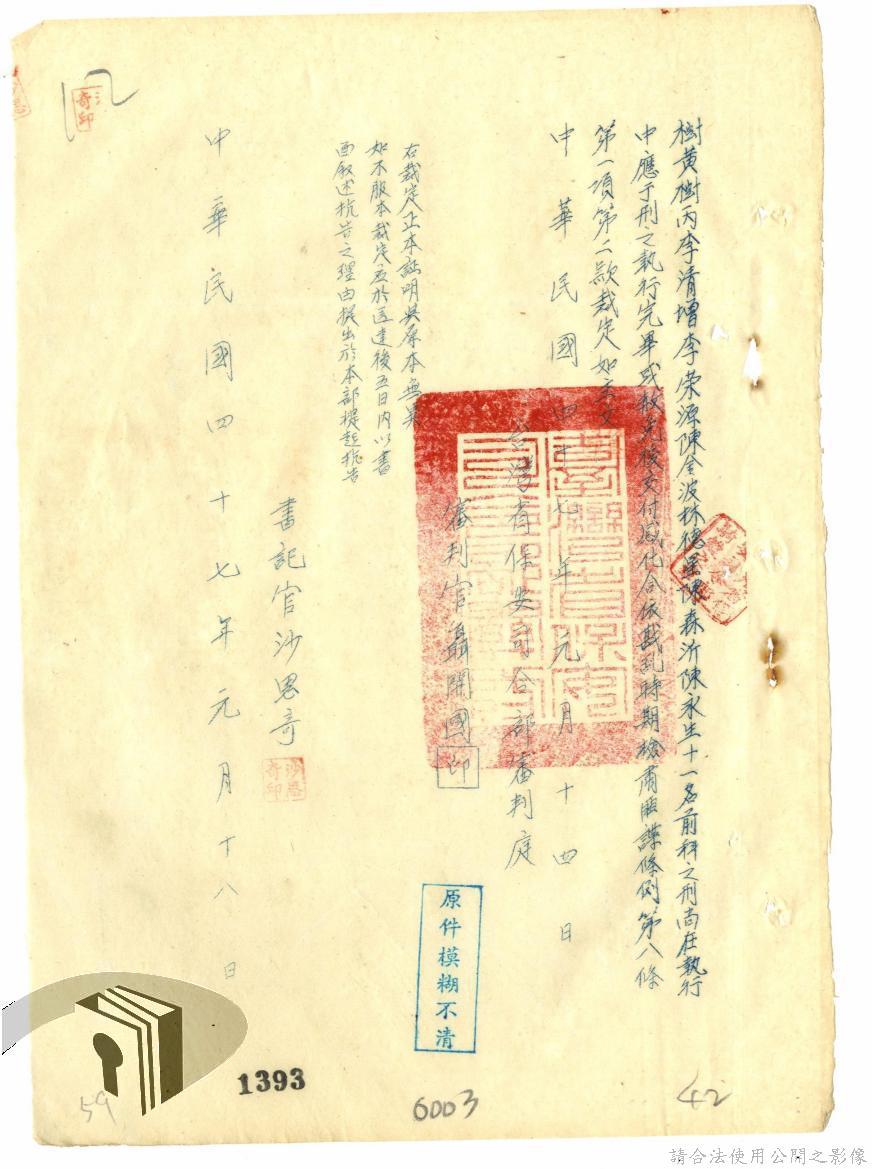 樹黃樹丙李清增李荣源陳金波林德星陳森沂陳永生十一名前科之刑尚在執行
中應于刑之執行完畢或赦免後交付感化合依戡乱時期檢肅匪諜條例第八條
第一項第二款裁定如主文
中華民國四十七年元月十四日
台灣省保安司令部審判庭
審判官聶開國
印
右裁定正本証明與原本無異
如不服本裁定應於送達後五日内以書
面叙述抗告之理由提出於本部提起抗告
書記官沙思奇
沙思奇印
中華民國四十七年元月十八日
奇印
原件模糊不清
1393
6003
42
59
請合法使用公開之影像